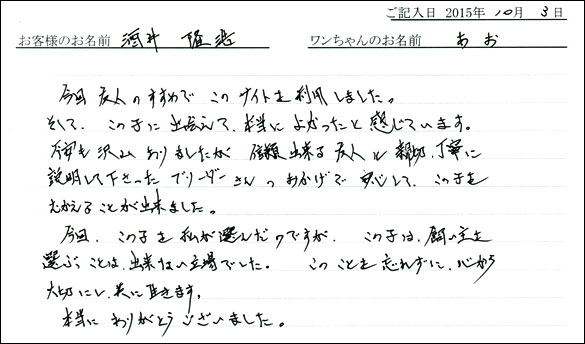 ご記入日 2015年 10月 3日
お客様のお名前 酒井 ワンちゃんのお名前 あお
今回 友人のすすめで このサイトを利用しました。
そして、この子に出会えて、本当によかったと感じています。
不安も沢山ありましたが 信頼出来る友人と親切、丁寧に
説明して下さったブリーダーさんのおかげで安心して、この子を
むかえることが出来ました。
今回、この子を私が選んだのですが、この子は、飼い主を
選ぶことは、出来ない立場でした。 このことを忘れずに、心から
大切にし、共に生きます。
本当にありがとうございました。